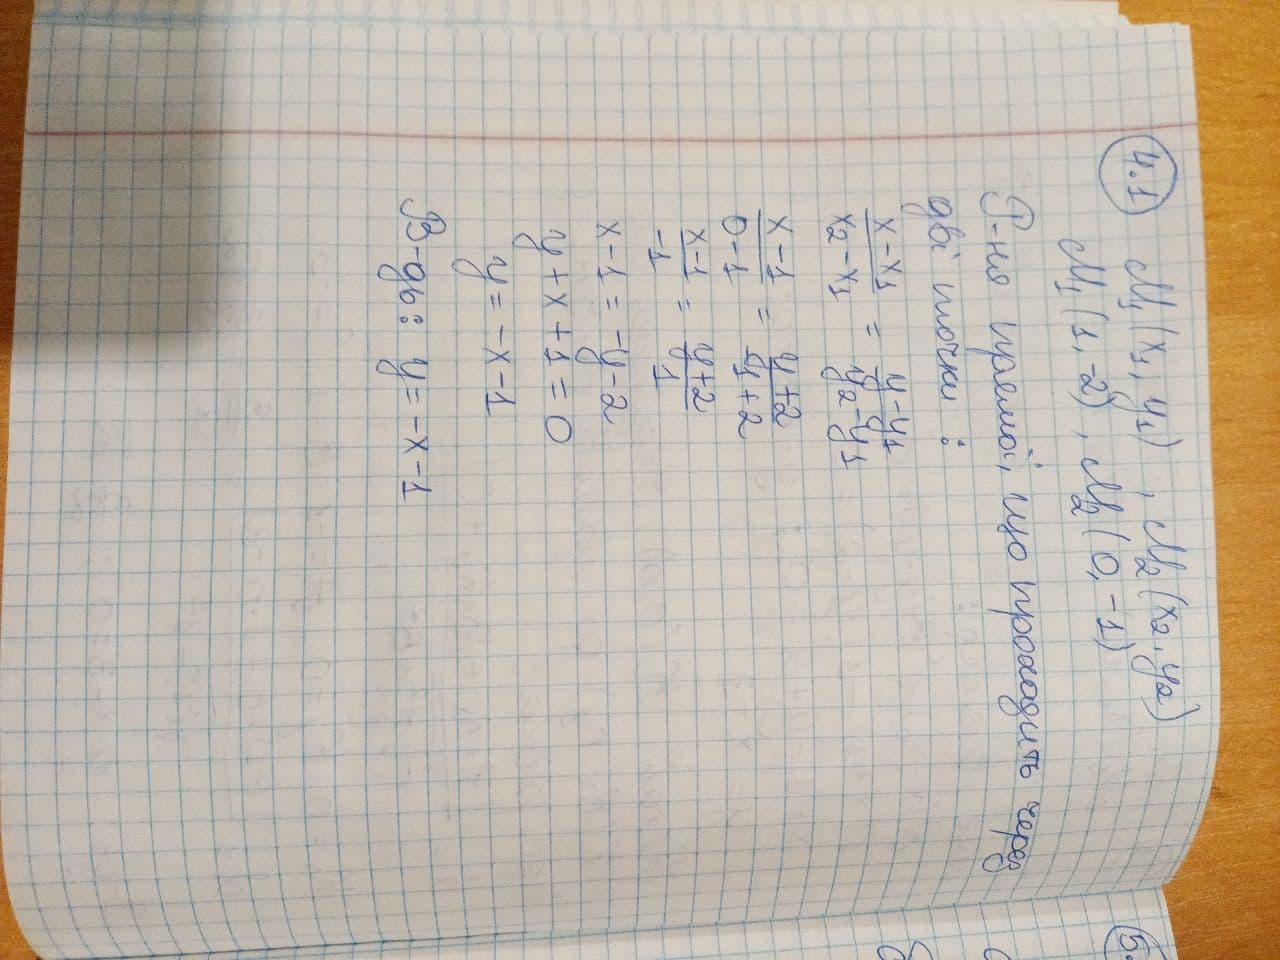 4.1 M₁(x₁, y₁), M₂(x₂, y₂)
M₁(1, -2), M₂(0, -1)
Р-ня прямої, що проходить через
дві точки:
(x-x₁)/(x₂-x₁) = (y-y₁)/(y₂-y₁)
(x-1)/(0-1) = (y+2)/(-1+2)
(x-1)/(-1) = (y+2)/1
x-1 = -y-2
y+x+1=0
y=-x-1
В-дь: y=-x-1
5.